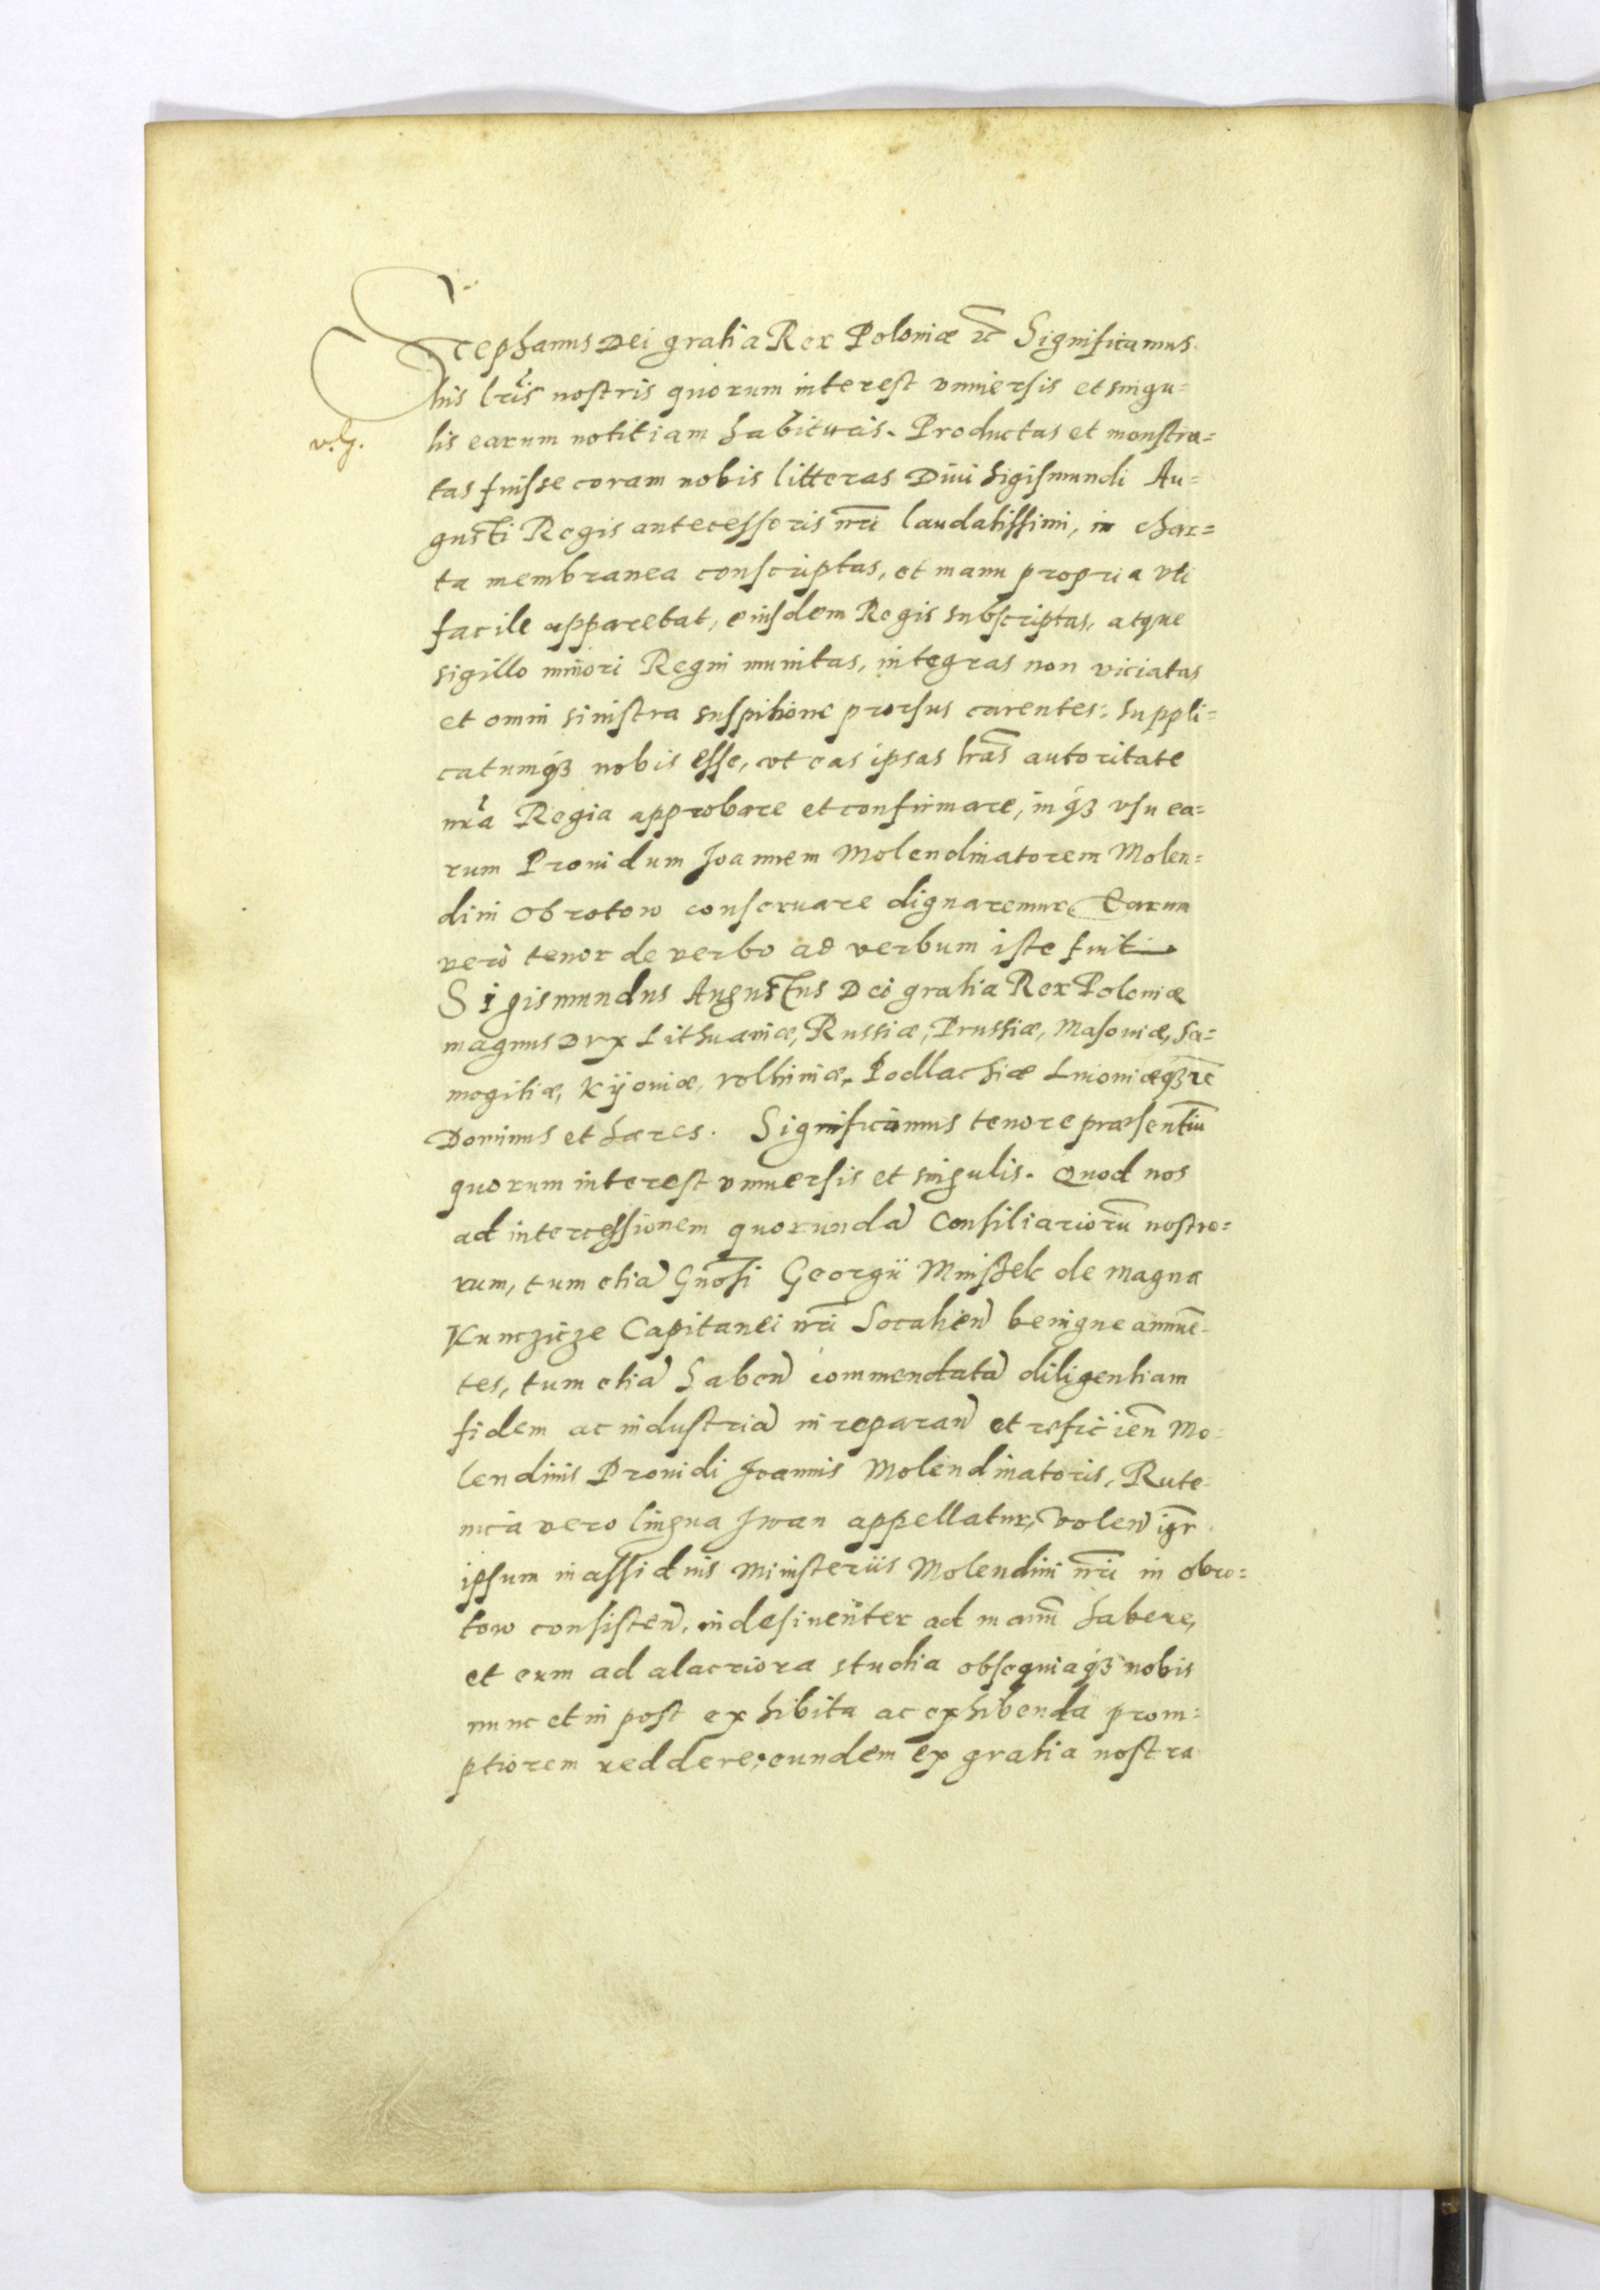 Stephanus Dei gratia Rex Poloniæ ꝛc̃ Significamus
his lris̃ nostris quorum interest vniuersis et singu=
v. g.
lis earum notitiam habituris. Productas et monstra=
tas fuisse coram nobis litteras Diui Sigismundi Au=
gusti Regis antecessoris nr̃i laudatissimi, in char=
ta membranea conscriptas, et manu propria vti
facile apparebat, eiusdem Regis subscriptas, atque
sigillo minori Regni munitas, integras non viciatas
et omni sinistra suspitione prorsus carentes: Suppli=
catumq́ꝫ nobis esse, vt eas ipsas lr̃as autoritate
nr̃a Regia approbare et confirmare, inq́ꝫ vsu ea=
rum Prouidum Joannem Molendinatorem Molen=
dini Obrotow conseruare dignaremur. Earum
verò tenor de verbo ad verbum iste fuit
Sigismundus Augustus Dei gratia Rex Poloniæ
magnus Dux Lithuaniæ, Russiæ, Prussiæ, Masouiæ, Sa=
mogitiæ, Kÿouiæ, volhiniæ, Podlachiæ Liuoniæq́ꝫ ꝛc̃
Dominus et hæres. Significamus tenore præsentiũ
quorum interest vniuersis et singulis. Quod nos
ad intercessionem quorundã Consiliariorũ nostro=
rum, tum etiã Gnosĩ Georgii Mnisek de magna
Kunczicze Capitanei nr̃i Socalieñ benigne annuẽ=
tes, tum etiã habeñ commendatã diligentiam
fidem ac industriã in reparañ et reficieñ Mo=
lendinis Prouidi Joannis Molendinatoris, Rute=
nica vero lingua Jwan appellatur, Voleñ igr̃
ipsum in assiduis Ministeriis Molendini nr̃i in obro=
tow consisteñ, indesinẽnter ad manũ habere,
et eum ad alacriora studia obsequiaq́ꝫ nobis
nunc et in post exhibita ac exhibenda prom=
ptiorem reddere, eundem ex gratia nostra